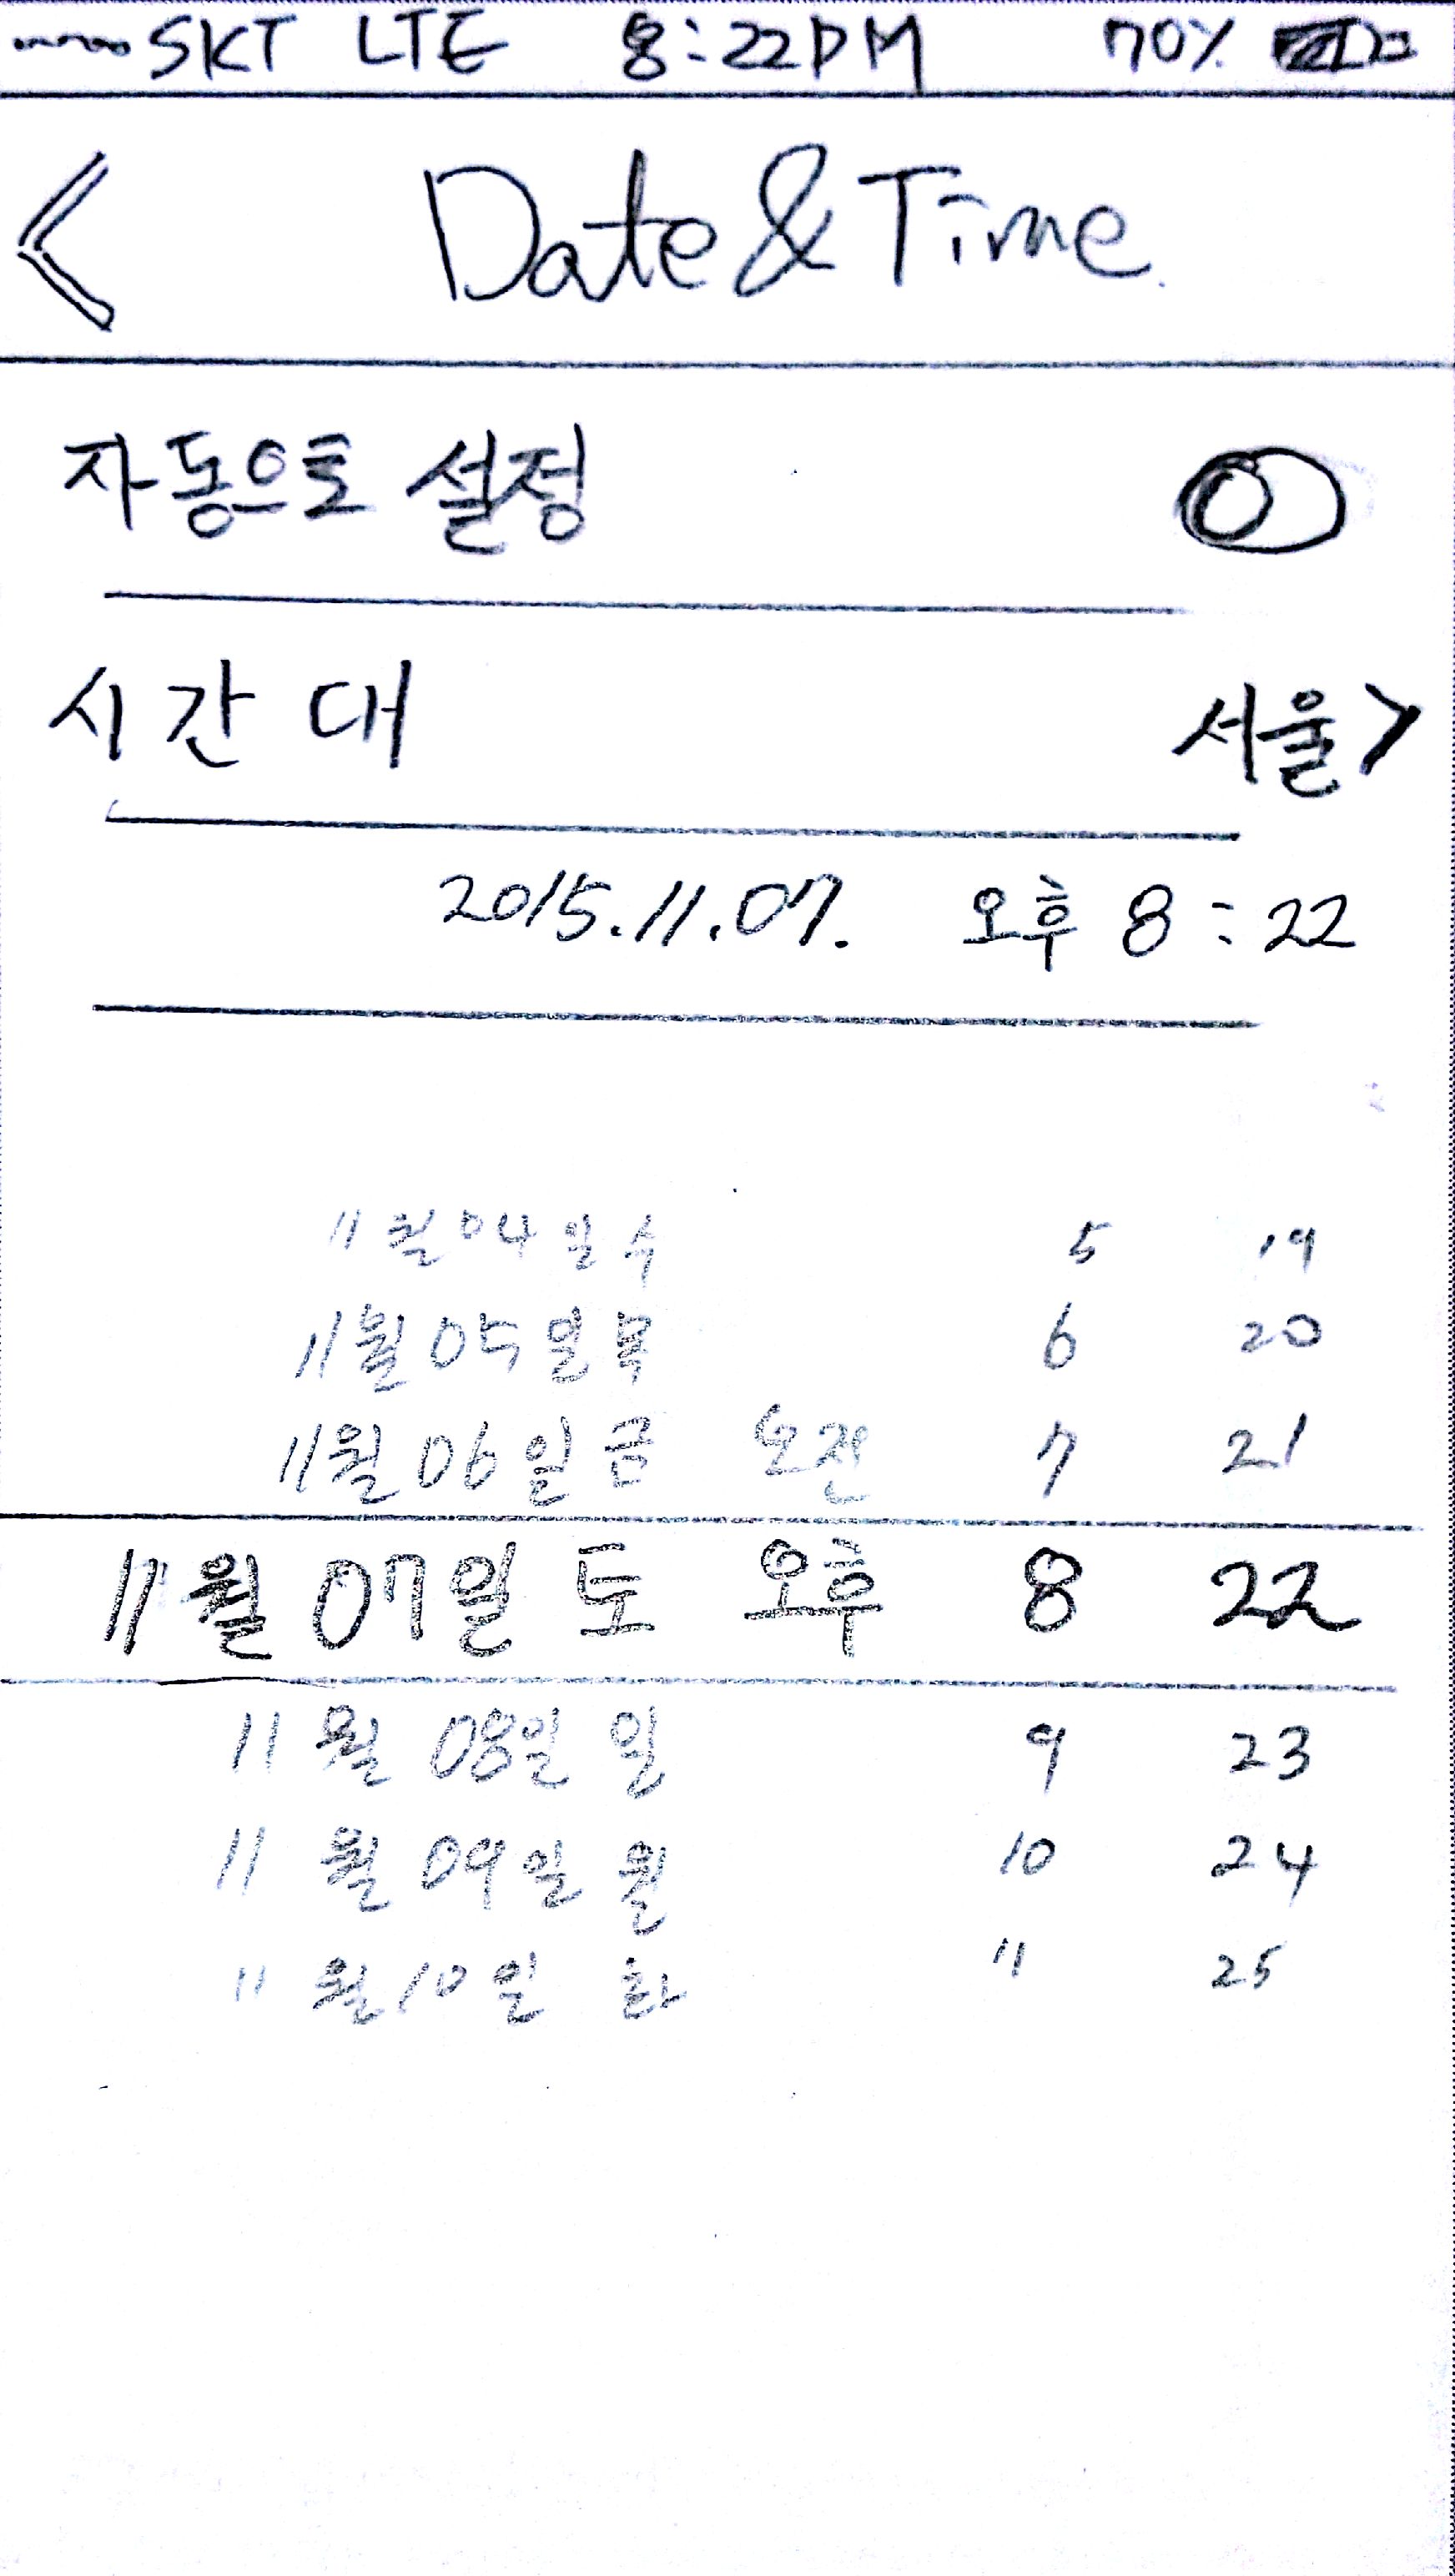 SKT LTE 8:22PM 70%
Date & Time
자동으로 설정
시간대 서울 >
2015.11.07. 오후 8:22
11월 04일 수 5 19
11월 05일 목 6 20
11월 06일 금 오전 7 21
11월 07일 토 오후 8 22
11월 08일 일 9 23
11월 09일 월 10 24
11월 10일 화 11 25